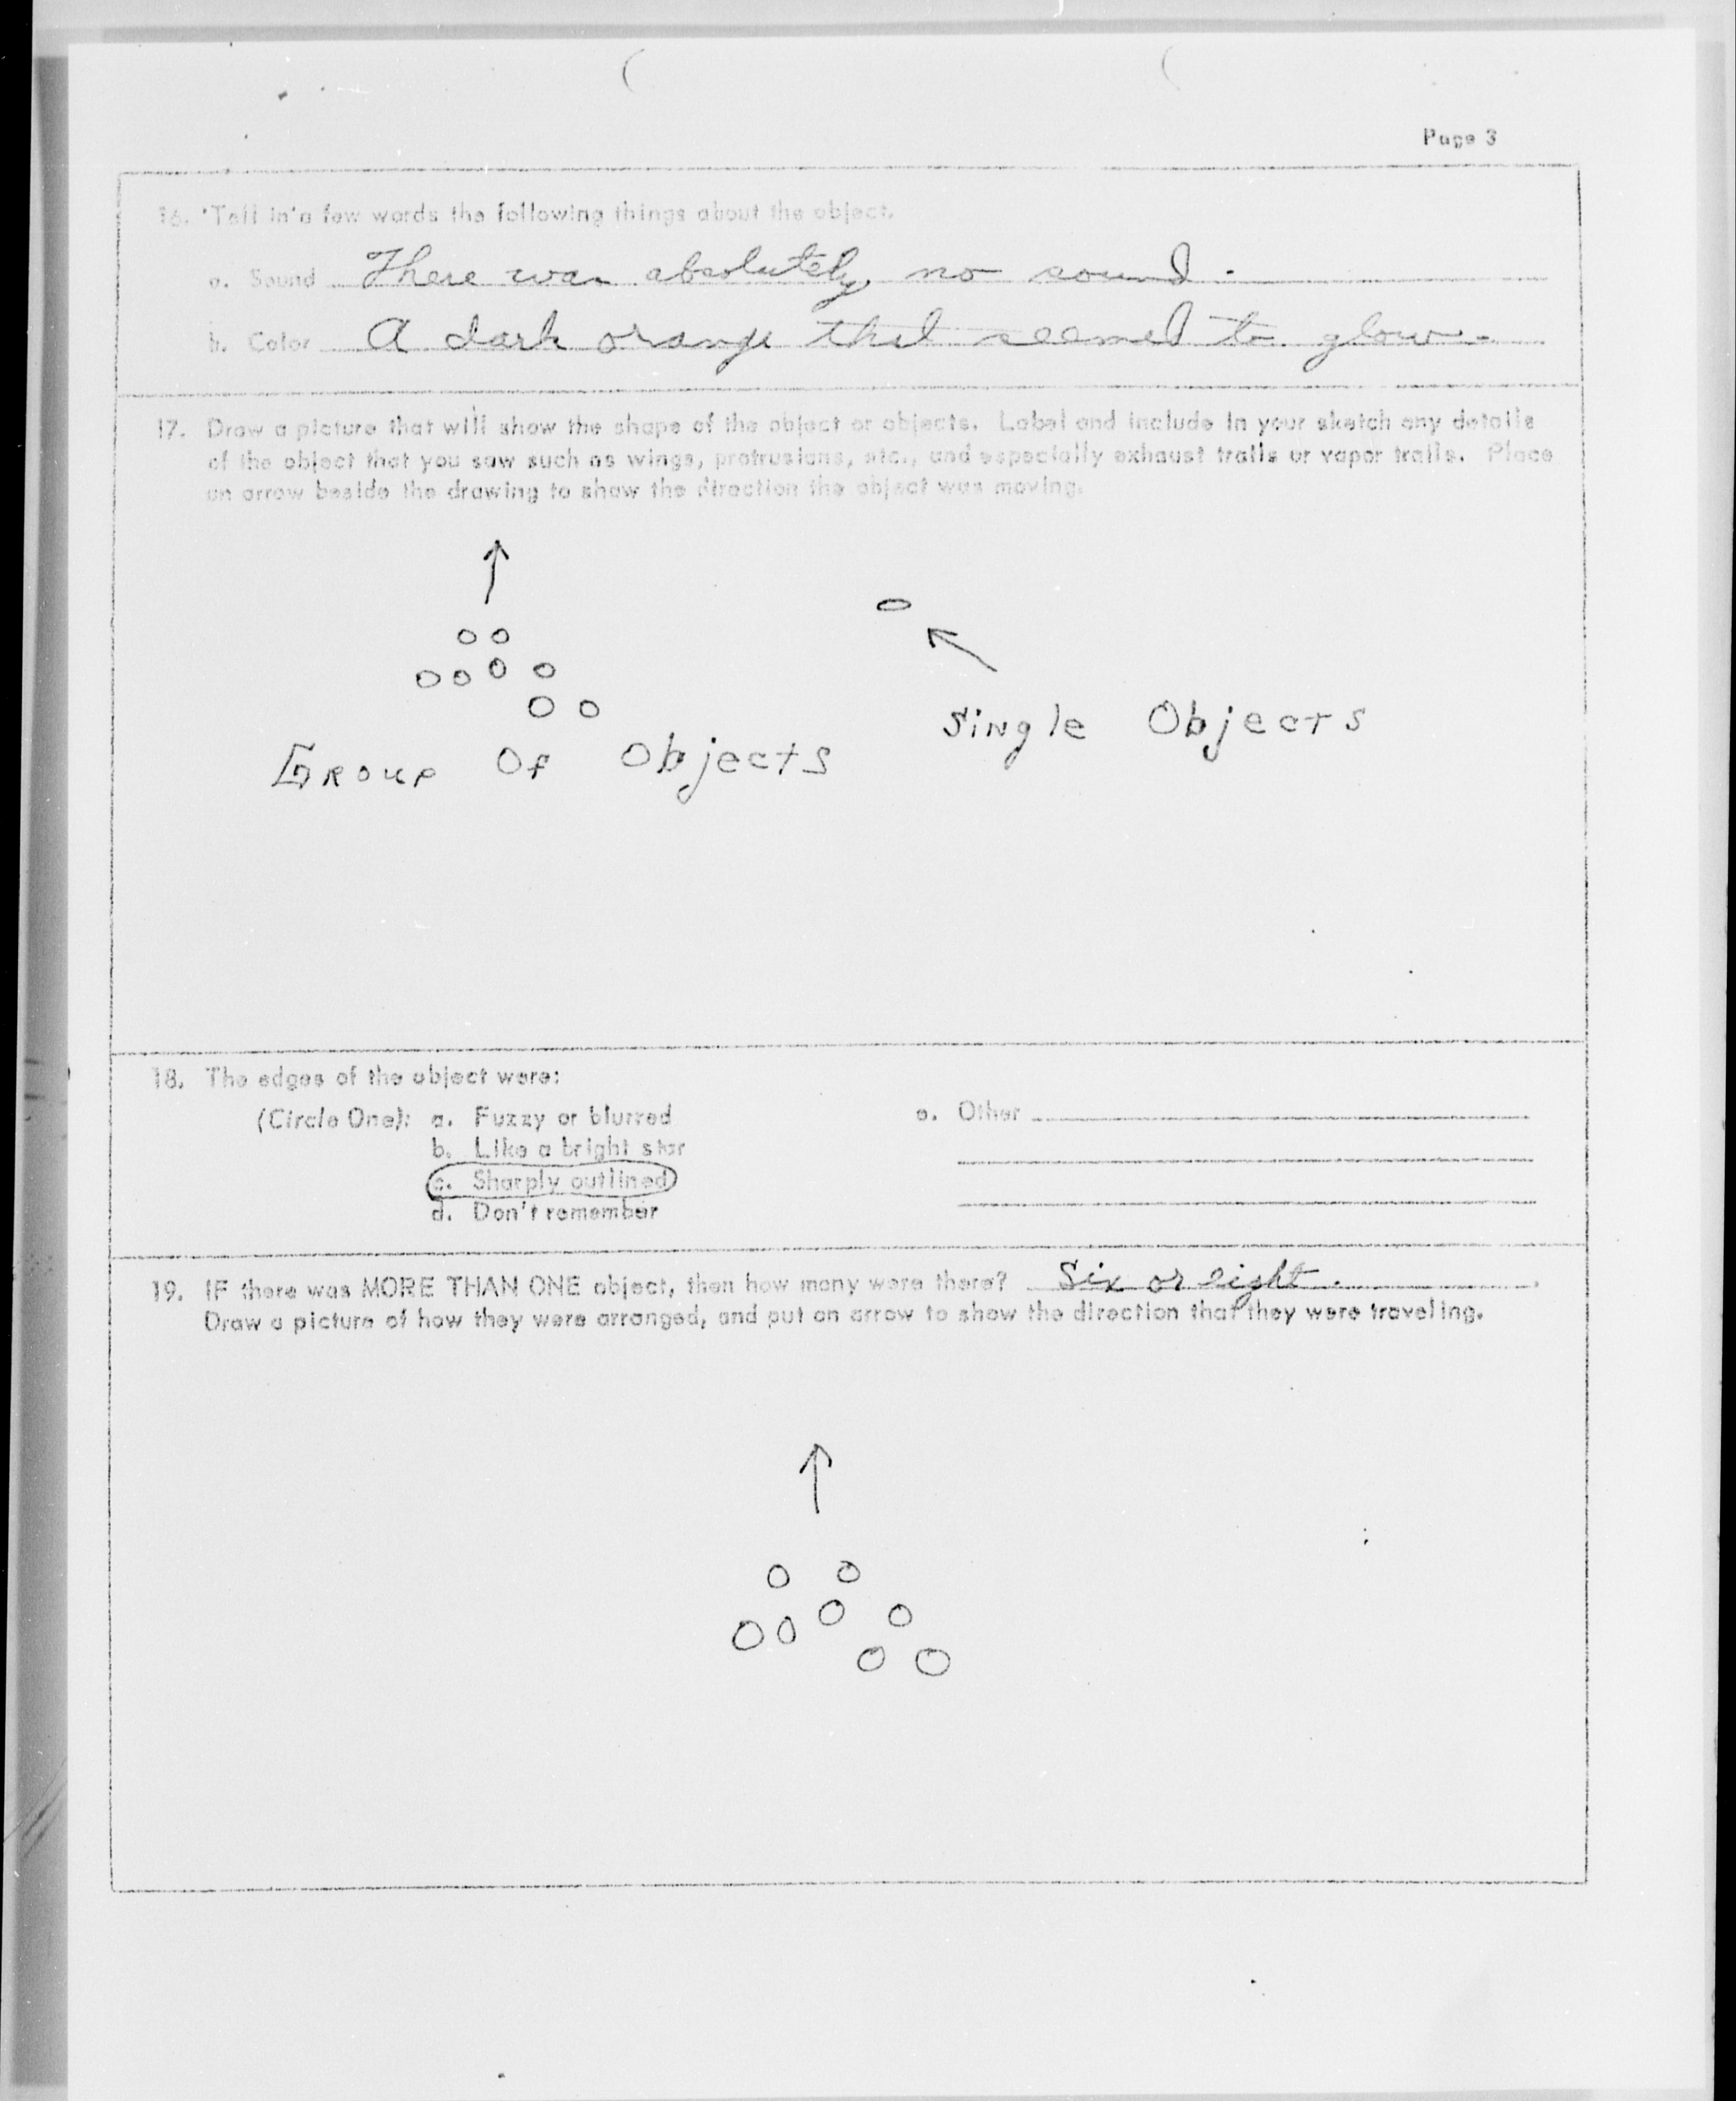 Page 3
16. Tell in a few words the following things about the object.
a. Sound There was absolutely no sound.
b. Color A dark orange that seemed to glow.
17. Draw a picture that will show the shape of the object or objects. Label and include in your sketch any details
of the object that you saw such as wings, protrusions, etc., and especially exhaust trails or vapor trails. Place
an arrow beside the drawing to show the direction the object was moving.
Group Of Objects
Single Objects
18. The edges of the object were:
(Circle One): a. Fuzzy or blurred
b. Like a bright star
c. Sharply outlined
d. Don't remember
e. Other
19. IF there was MORE THAN ONE object, then how many were there? Six or eight.
Draw a picture of how they were arranged, and put an arrow to show the direction that they were traveling.